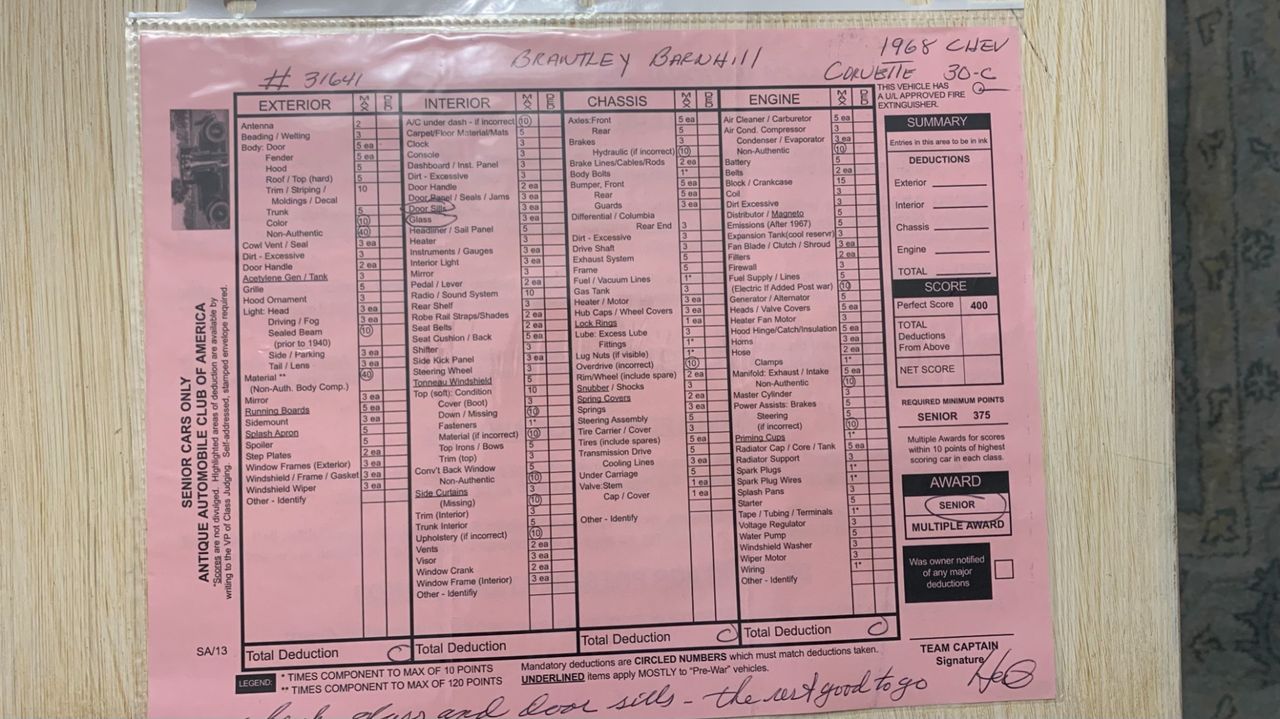 BRANTLEY BARNHILL
1968 CHEV
CORVETTE 30-C
# 31641
THIS VEHICLE HAS
A U/L APPROVED FIRE
EXTINGUISHER.
SENIOR CARS ONLY
ANTIQUE AUTOMOBILE CLUB OF AMERICA
*Scores are not divulged. Highlighted areas of deduction are available by
writing to the VP of Class Judging. Self-addressed, stamped envelope required.
SA/13
EXTERIOR MAX DED
Antenna 2
Beading / Welting 3
Body: Door 5 ea
Fender 5 ea
Hood 5
Roof / Top (hard) 5
Trim / Striping / 10
Moldings / Decal
Trunk 5
Color 10
Non-Authentic 40
Cowl Vent / Seal 3 ea
Dirt - Excessive 3
Door Handle 2 ea
Acetylene Gen / Tank 3
Grille 5
Hood Ornament 3
Light: Head 3 ea
Driving / Fog 3 ea
Sealed Beam 10
(prior to 1940)
Side / Parking 3 ea
Tail / Lens 3 ea
Material ** 40
(Non-Auth. Body Comp.)
Mirror 3 ea
Running Boards 5 ea
Sidemount 3 ea
Splash Apron 5
Spoiler 5
Step Plates 2 ea
Window Frames (Exterior) 3 ea
Windshield / Frame / Gasket 3 ea
Windshield Wiper 3 ea
Other - Identify
Total Deduction 0
INTERIOR MAX DED
A/C under dash - if incorrect 10
Carpet/Floor Material/Mats 5
Clock 3
Console 3
Dashboard / Inst. Panel 3
Dirt - Excessive 3
Door Handle 2 ea
Door Panel / Seals / Jams 3 ea
Door Sills 3 ea
Glass 3 ea
Headliner / Sail Panel 5
Heater 3
Instruments / Gauges 3 ea
Interior Light 3 ea
Mirror 3
Pedal / Lever 2 ea
Radio / Sound System 10
Rear Shelf 3
Robe Rail Straps/Shades 2 ea
Seat Belts 2 ea
Seat Cushion / Back 5 ea
Shifter 3
Side Kick Panel 3 ea
Steering Wheel 3
Tonneau Windshield 5
Top (soft): Condition 10
Cover (Boot) 3
Down / Missing 10
Fasteners 1*
Material (if incorrect) 10
Top Irons / Bows 5
Trim (top) 3
Conv't Back Window 5
Non-Authentic 10
Side Curtains 3
(Missing) 10
Trim (Interior) 3
Trunk Interior 5
Upholstery (if incorrect) 10
Vents 2 ea
Visor 3 ea
Window Crank 2 ea
Window Frame (Interior) 3 ea
Other - Identifiy
Total Deduction
CHASSIS MAX DED
Axles:Front 5 ea
Rear 5
Brakes 3
Hydraulic (if incorrect) 10
Brake Lines/Cables/Rods 2 ea
Body Bolts 1*
Bumper, Front 5 ea
Rear 5 ea
Guards 3 ea
Differential / Columbia
Rear End 3
Dirt - Excessive 3
Drive Shaft 3
Exhaust System 5
Frame 5
Fuel / Vacuum Lines 1*
Gas Tank 3
Heater / Motor 3 ea
Hub Caps / Wheel Covers 3 ea
Lock Rings 1 ea
Lube: Excess Lube 3
Fittings 1*
Lug Nuts (if visible) 1*
Overdrive (incorrect) 10
Rim/Wheel (include spare) 2 ea
Snubber / Shocks 3
Spring Covers 2 ea
Springs 3 ea
Steering Assembly 5
Tire Carrier / Cover 3
Tires (include spares) 5 ea
Transmission Drive 5
Cooling Lines 3 ea
Under Carriage 5
Valve:Stem 1 ea
Cap / Cover 1 ea
Other - Identify
Total Deduction 0
ENGINE MAX DED
Air Cleaner / Carburetor 5 ea
Air Cond. Compressor 3
Condenser / Evaporator 3 ea
Non-Authentic 10
Battery 5
Belts 2 ea
Block / Crankcase 15
Coil 3
Dirt Excessive 3
Distributor / Magneto 5
Emissions (After 1967) 5
Expansion Tank(cool reservr) 3
Fan Blade / Clutch / Shroud 3 ea
Fillers 2 ea
Firewall 3
Fuel Supply / Lines 5
(Electric If Added Post war) 10
Generator / Alternator 5
Heads / Valve Covers 5 ea
Heater Fan Motor 3
Hood Hinge/Catch/Insulation 5 ea
Horns 3 ea
Hose 2 ea
Clamps 1*
Manifold: Exhaust / Intake 5 ea
Non-Authentic 10
Master Cylinder 3
Power Assists: Brakes 5
Steering 5
(if incorrect) 10
Priming Cups 1*
Radiator Cap / Core / Tank 5 ea
Radiator Support 3
Spark Plugs 1*
Spark Plug Wires 1*
Splash Pans 3
Starter 5
Tape / Tubing / Terminals 1*
Voltage Regulator 3
Water Pump 5
Windshield Washer 3
Wiper Motor 3
Wiring 1*
Other - Identify
Total Deduction 0
SUMMARY
Entries in this area to be in ink
DEDUCTIONS
Exterior
Interior
Chassis
Engine
TOTAL
SCORE
Perfect Score 400
TOTAL
Deductions
From Above
NET SCORE
REQUIRED MINIMUM POINTS
SENIOR 375
Multiple Awards for scores
within 10 points of highest
scoring car in each class.
AWARD
SENIOR
MULTIPLE AWARD
Was owner notified
of any major
deductions
TEAM CAPTAIN
Signature
LEGEND:
* TIMES COMPONENT TO MAX OF 10 POINTS
** TIMES COMPONENT TO MAX OF 120 POINTS
Mandatory deductions are CIRCLED NUMBERS which must match deductions taken.
UNDERLINED items apply MOSTLY to "Pre-War" vehicles.
glass and door sills - the rest good to go